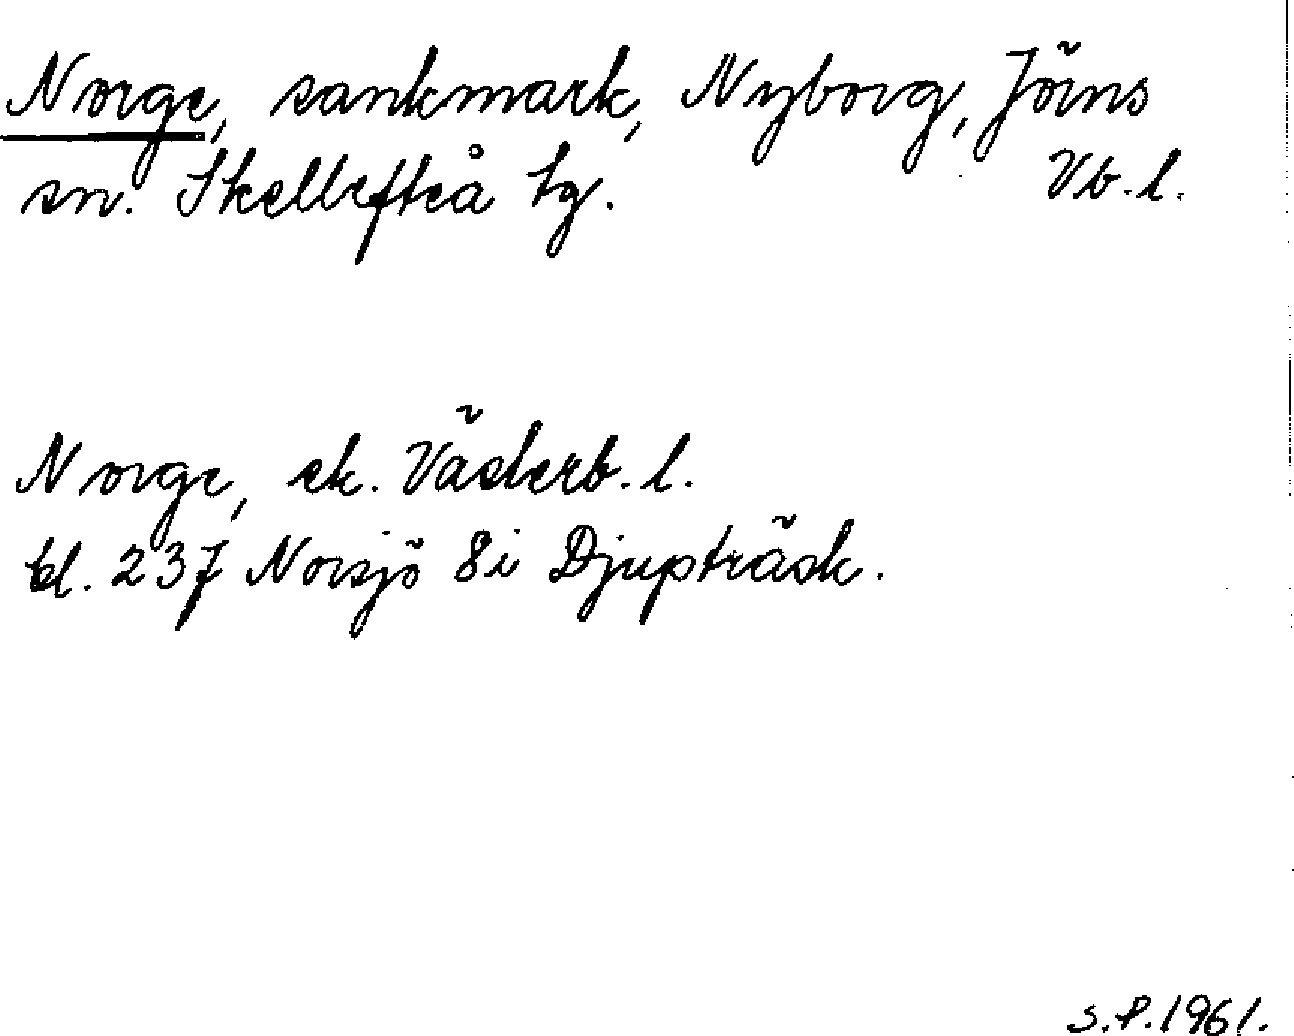 Norge, sankmark, Nyborg, Jörns
sn. Skellefteå tg. Vb.l.
Norge, ek. Västerb.l.
bl. 237 Norsjö 8i Djupträsk.
S.P.1961.